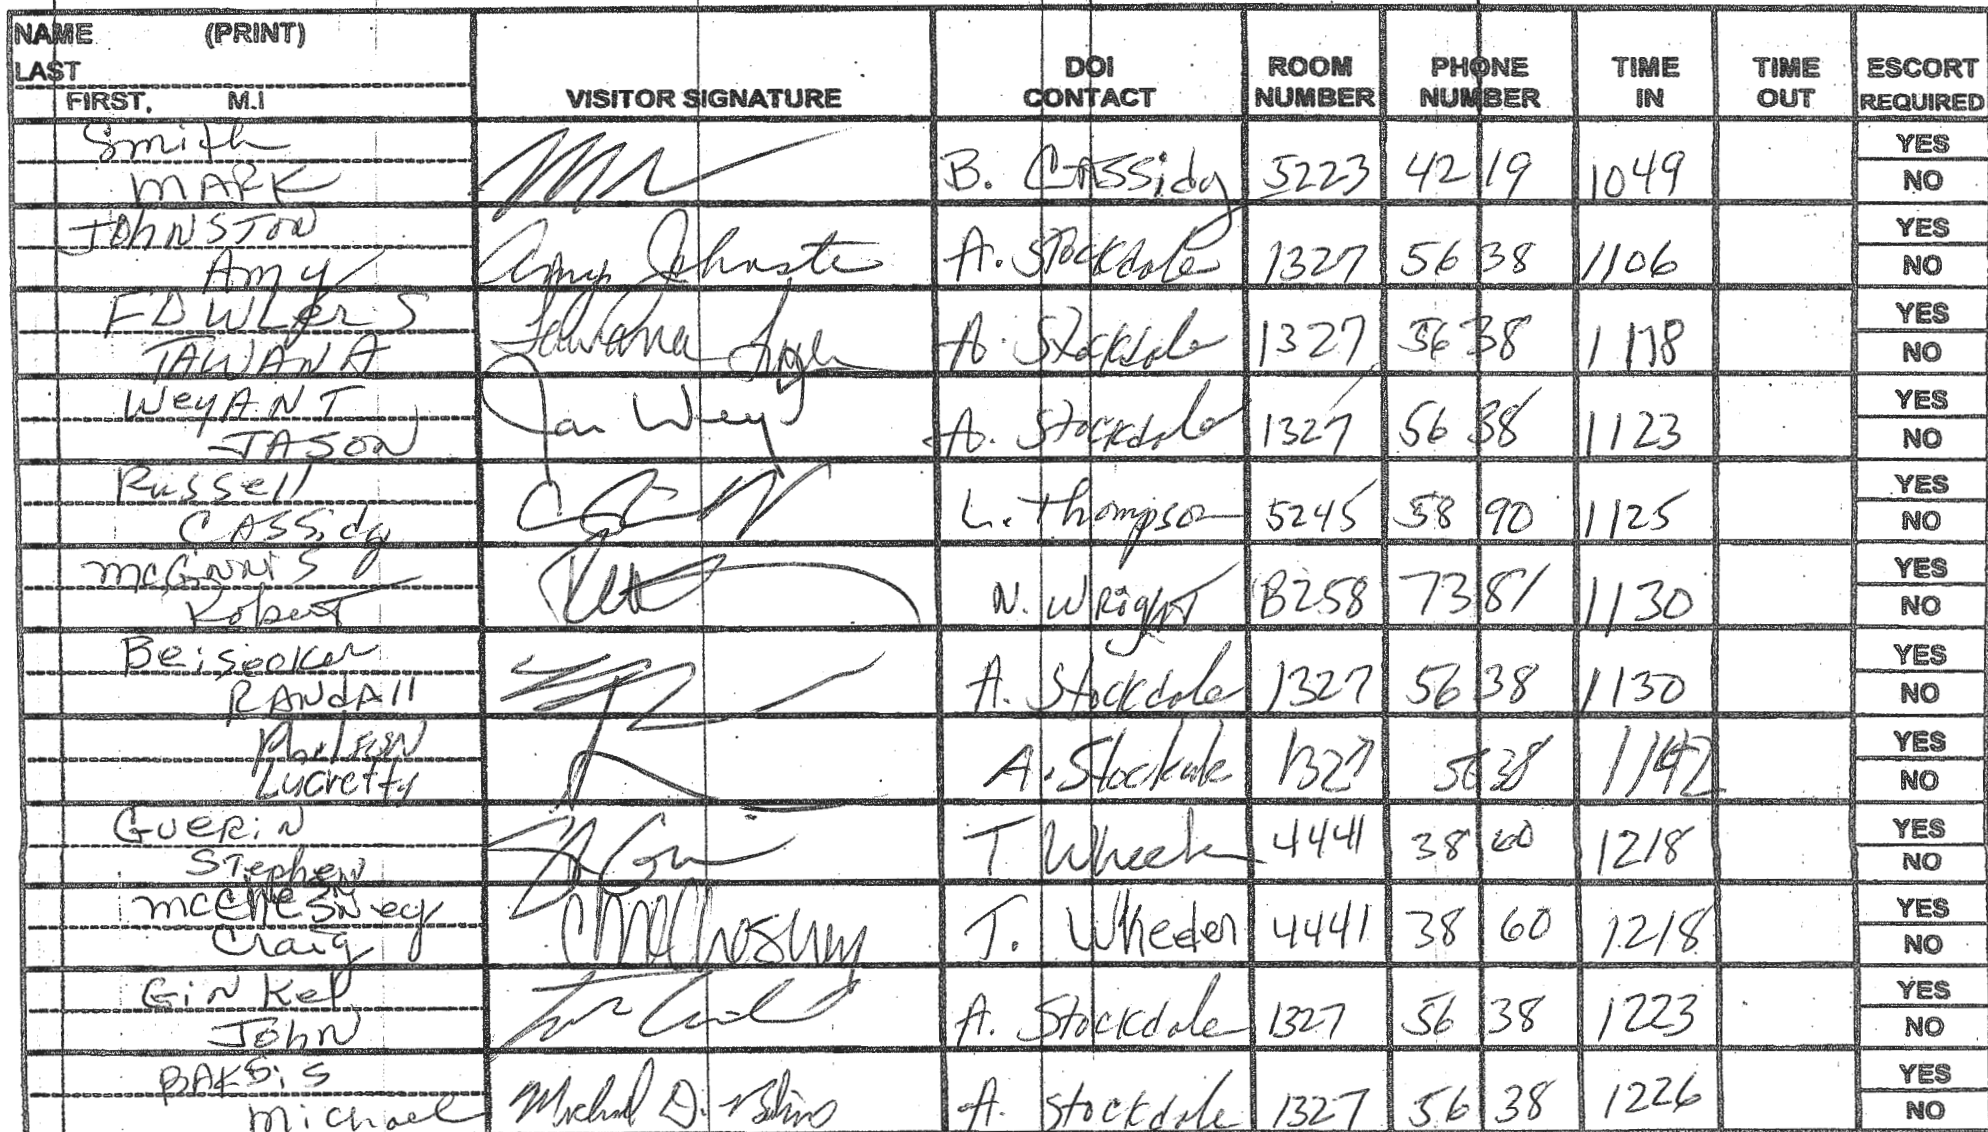 NAME (PRINT)
LAST
FIRST, M.I
VISITOR SIGNATURE
DOI CONTACT
ROOM NUMBER
PHONE NUMBER
TIME IN
TIME OUT
ESCORT REQUIRED
Smith
MARK
B. CASSidy 5223 4219 1049 YES
NO
JOHNSTON
Amy
Amy Johnston A. Stockdale 1327 5638 1106 YES
NO
FOWLers
TAWANA
A. Stockdale 1327 5638 1118 YES
NO
WeyANT
JASON
A. Stockdale 1327 5638 1123 YES
NO
Russell
CASSidy
L. Thompson 5245 5890 1125 YES
NO
McGinnis
Robert
N. Wright B258 7381 1130 YES
NO
Beisecker
RANdAll
A. Stockdale 1327 5638 1130 YES
NO
Lucretty
A. Stockdale 1327 5638 1142 YES
NO
GUERiN
Stephen
T Wheeler 4441 3860 1218 YES
NO
McChesney
Craig
T. Wheeler 4441 3860 1218 YES
NO
GiNKel
John
A. Stockdale 1327 5638 1223 YES
NO
BAKSiS
Michael
A. Stockdale 1327 5638 1226 YES
NO